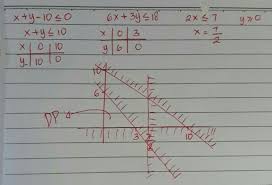 x+y-10≤0 6x+3y≤18 2x≤7 y≥0
x+y≤10 x 0 3 x=7/2
x 0 10 y 6 0
y 10 0
10
6
DP
3 10